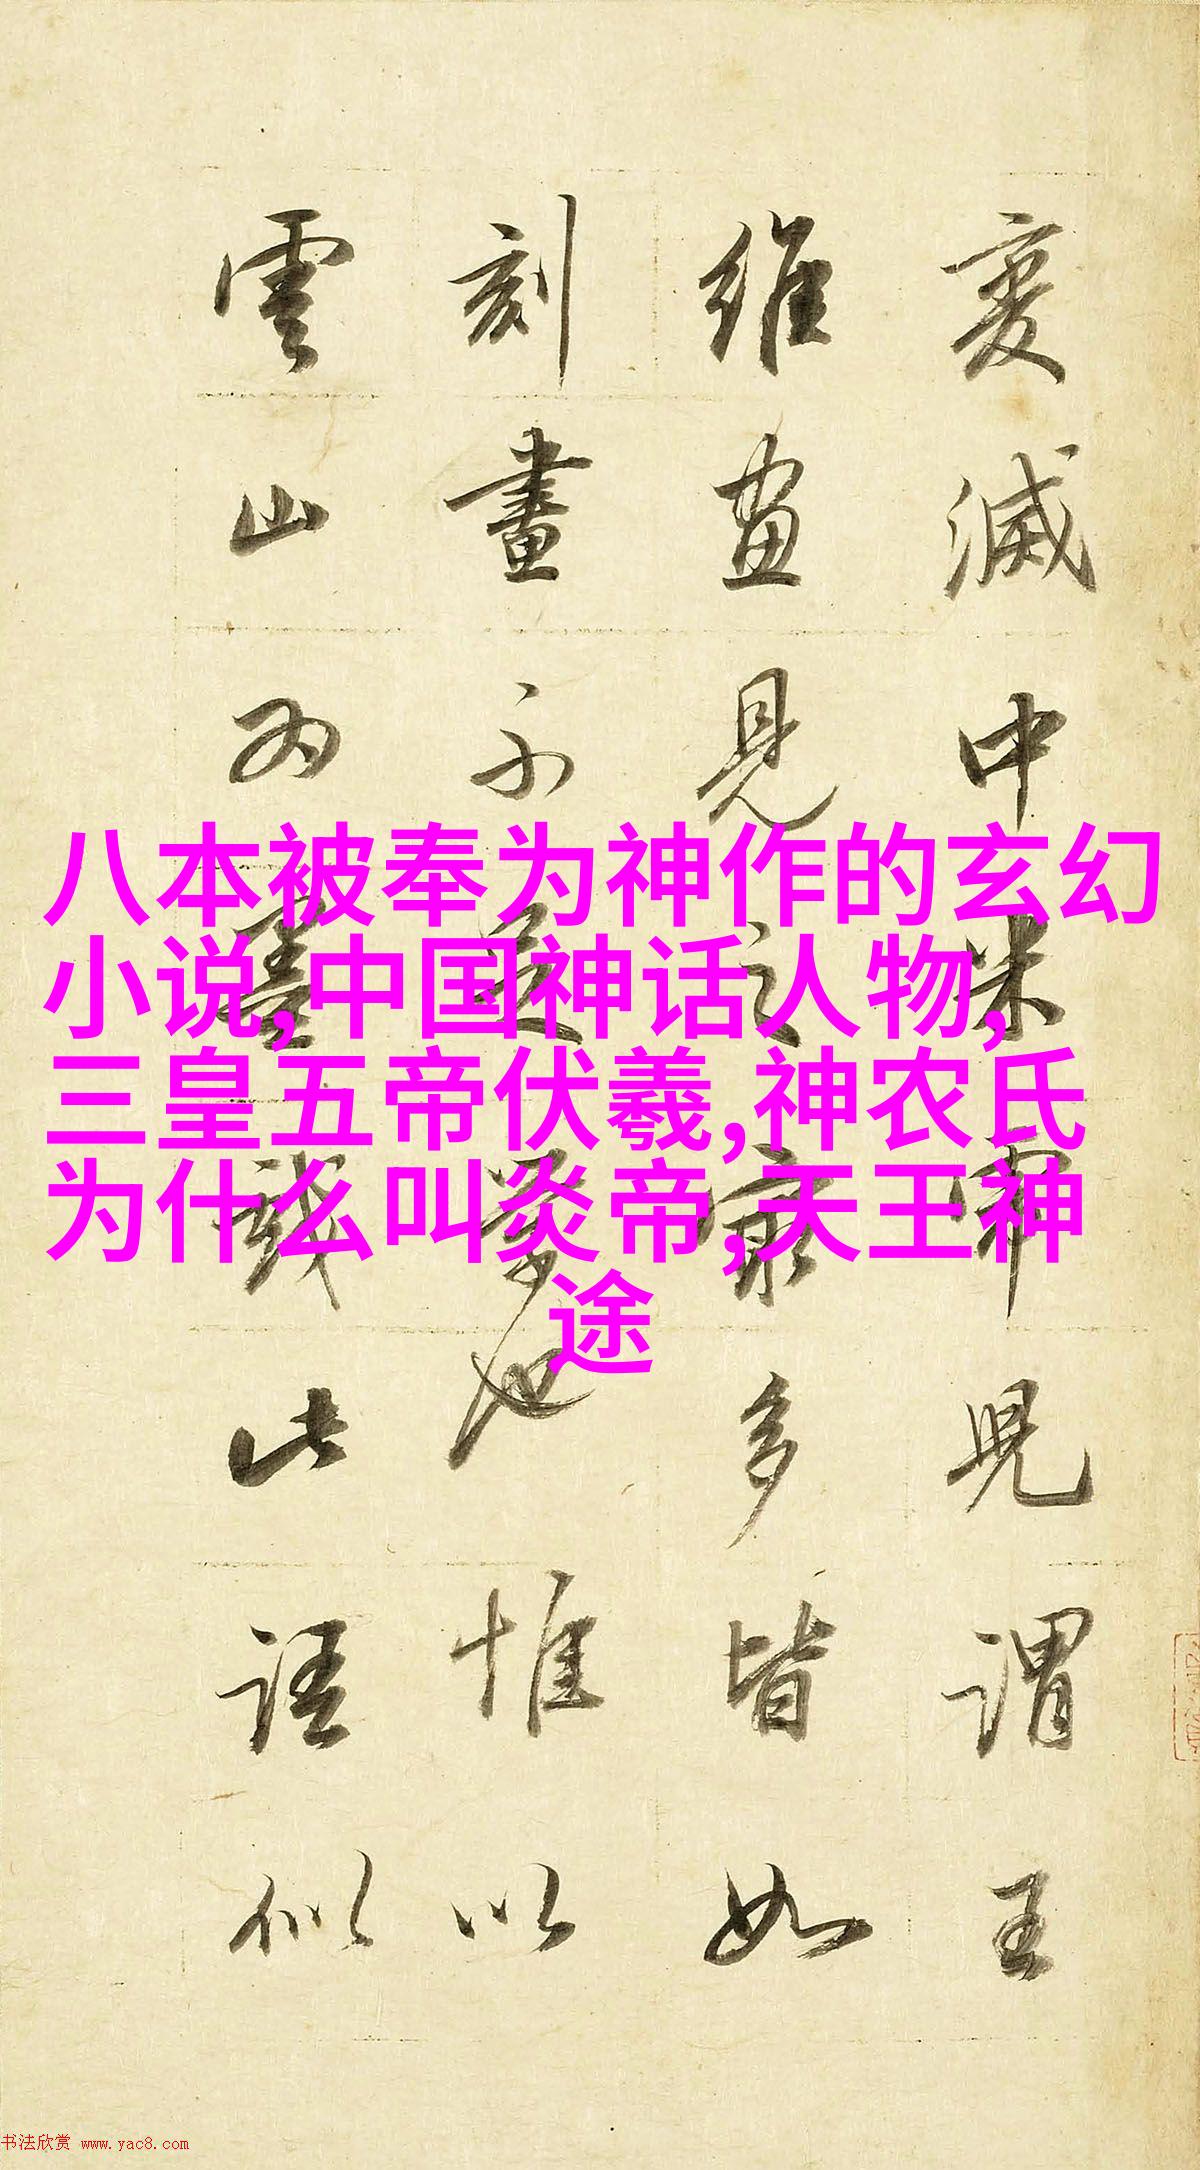 変滅中米芾見謂王
維畫見之最多皆如
刻畫不足學也惟以
雲山為墨戲此語似
八本被奉为神作的玄幻
小说,中国神话人物,
三皇五帝伏羲,神农氏
为什么叫炎帝,天王神
途
书法欣赏 www.yac8.com